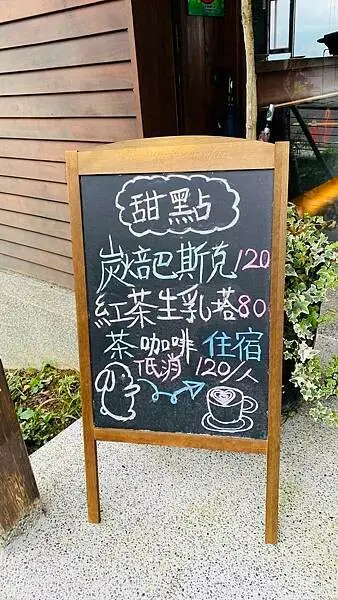 甜點
炭焙巴斯克120
紅茶生乳塔80
茶咖啡 住宿
低消 120/人